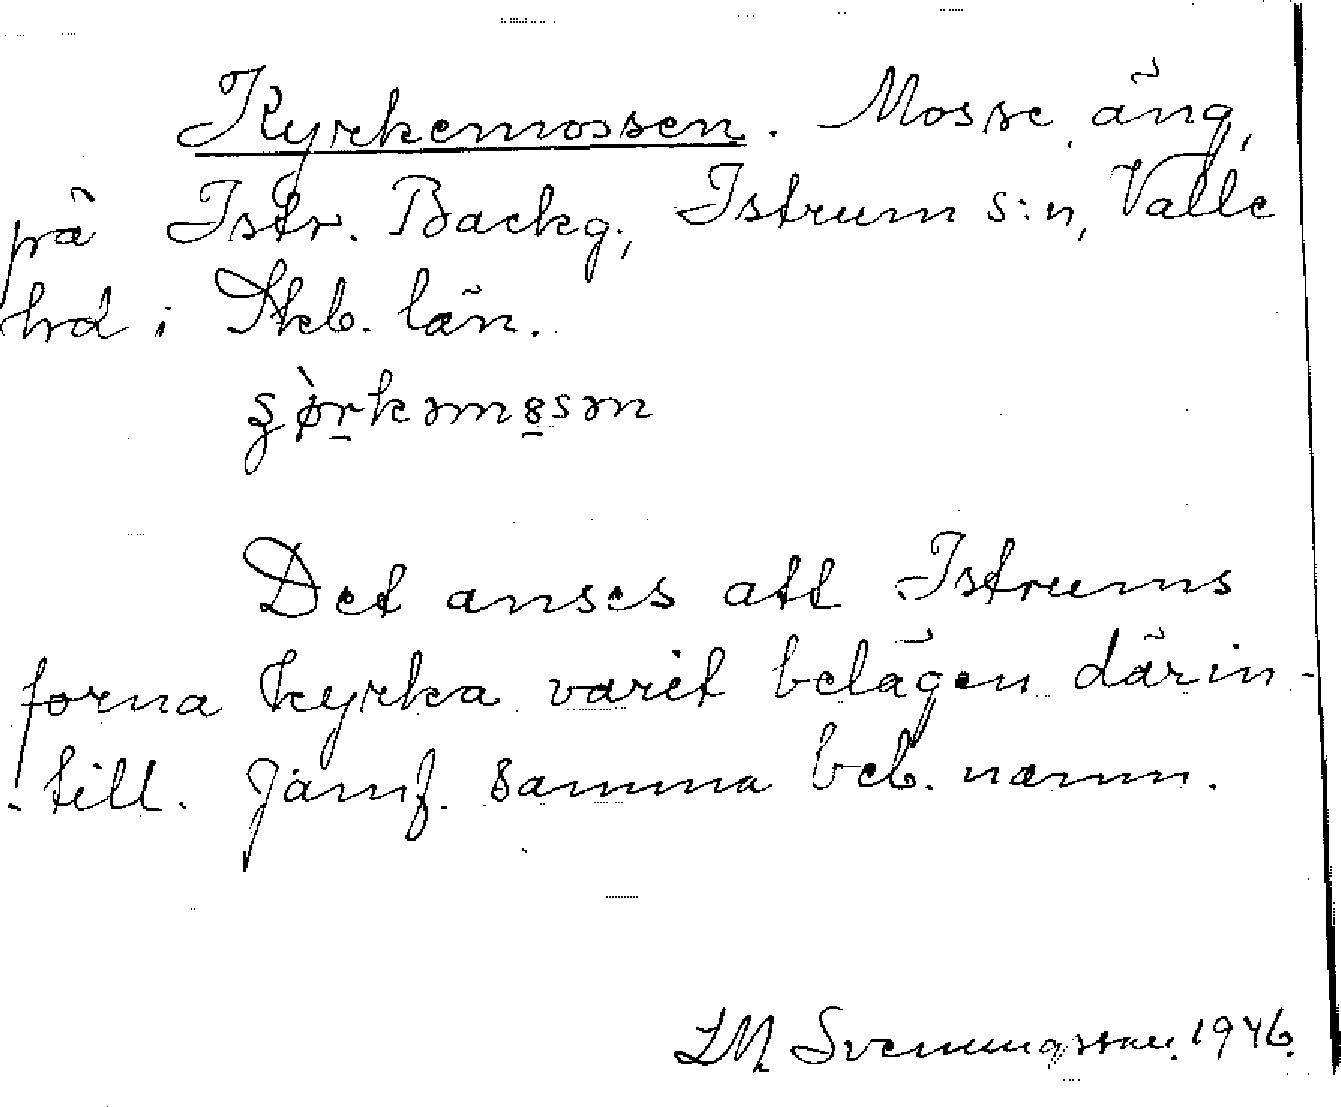 Kyrkemossen. Mosse, äng,
på Istr. Backg., Istrum s:n, Valle
hd i Skb. län.
Det anses att Istrums
forna kyrka varit belägen därin-
till. Jämf. samma beb. namn.
LM Svenungsson. 1946.